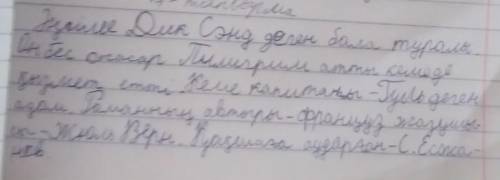 Әңгіме Дик Сэнд деген бала туралы.
Он бес Пилигрим атты кемеде
қызмет етті. Кеме капитаны - Гуль деген
адам. Романның авторы - француз жазушы-
сы - Жюль Верн. Қазақшаға аударған - С.